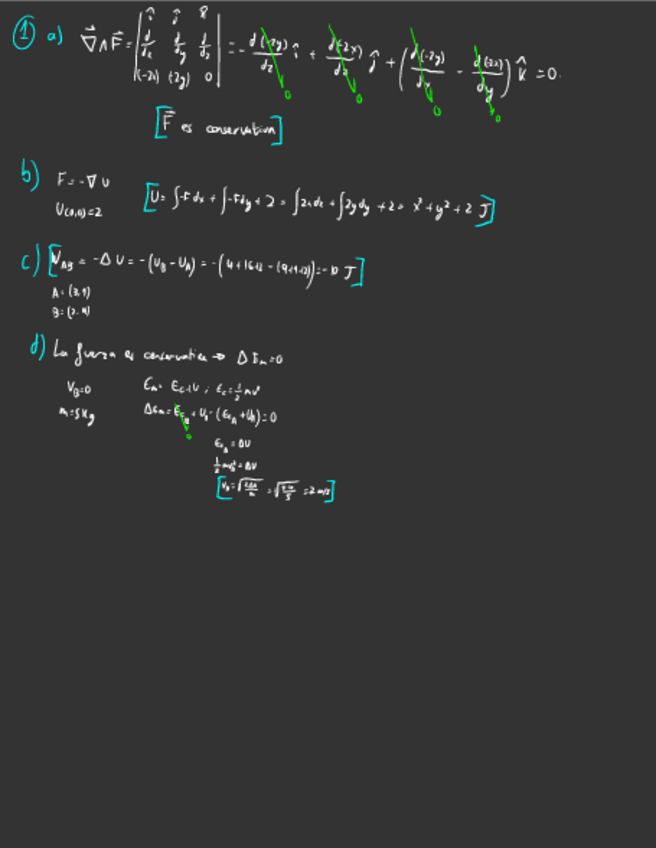 ① a) ∇⃗ ∧ F⃗ = | î ĵ k̂ ; d/dx d/dy d/dz ; (-2x) (-2y) 0 | = - d(-2y)/dz î + d(-2x)/dz ĵ + ( d(-2y)/dx - d(-2x)/dy ) k̂ = 0.
[F⃗ es conservativa]
b) F = -∇U
U(0,0) = 2
[U = ∫-F dx + ∫-F dy + 2 = ∫2x dx + ∫2y dy + 2 = x² + y² + 2 J]
c) [W_AB = -ΔU = -(U_B - U_A) = -(4+16+2 - (9+1+2)) = -10 J]
A = (3,1)
B = (2,4)
d) La fuerza es conservativa → ΔE_m = 0
V_B = 0 E_m = E_c + U ; E_c = ½ m v²
m = 5 kg ΔE_m = E_cB + U_B - (E_cA + U_A) = 0
E_cA = ΔU
½ m v_A² = ΔU
= 2 m/s]